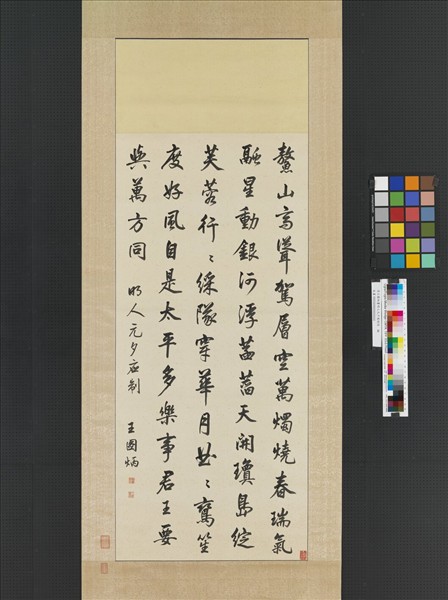 鰲山高聳駕層空萬燭燒春瑞氣
融星動銀河浮菡萏天開瓊島綻
芙蓉行〻綵隊穿華月曲〻鸞笙
度好風自是太平多樂事君王要
與萬方同
明人元夕應制
王圖炳